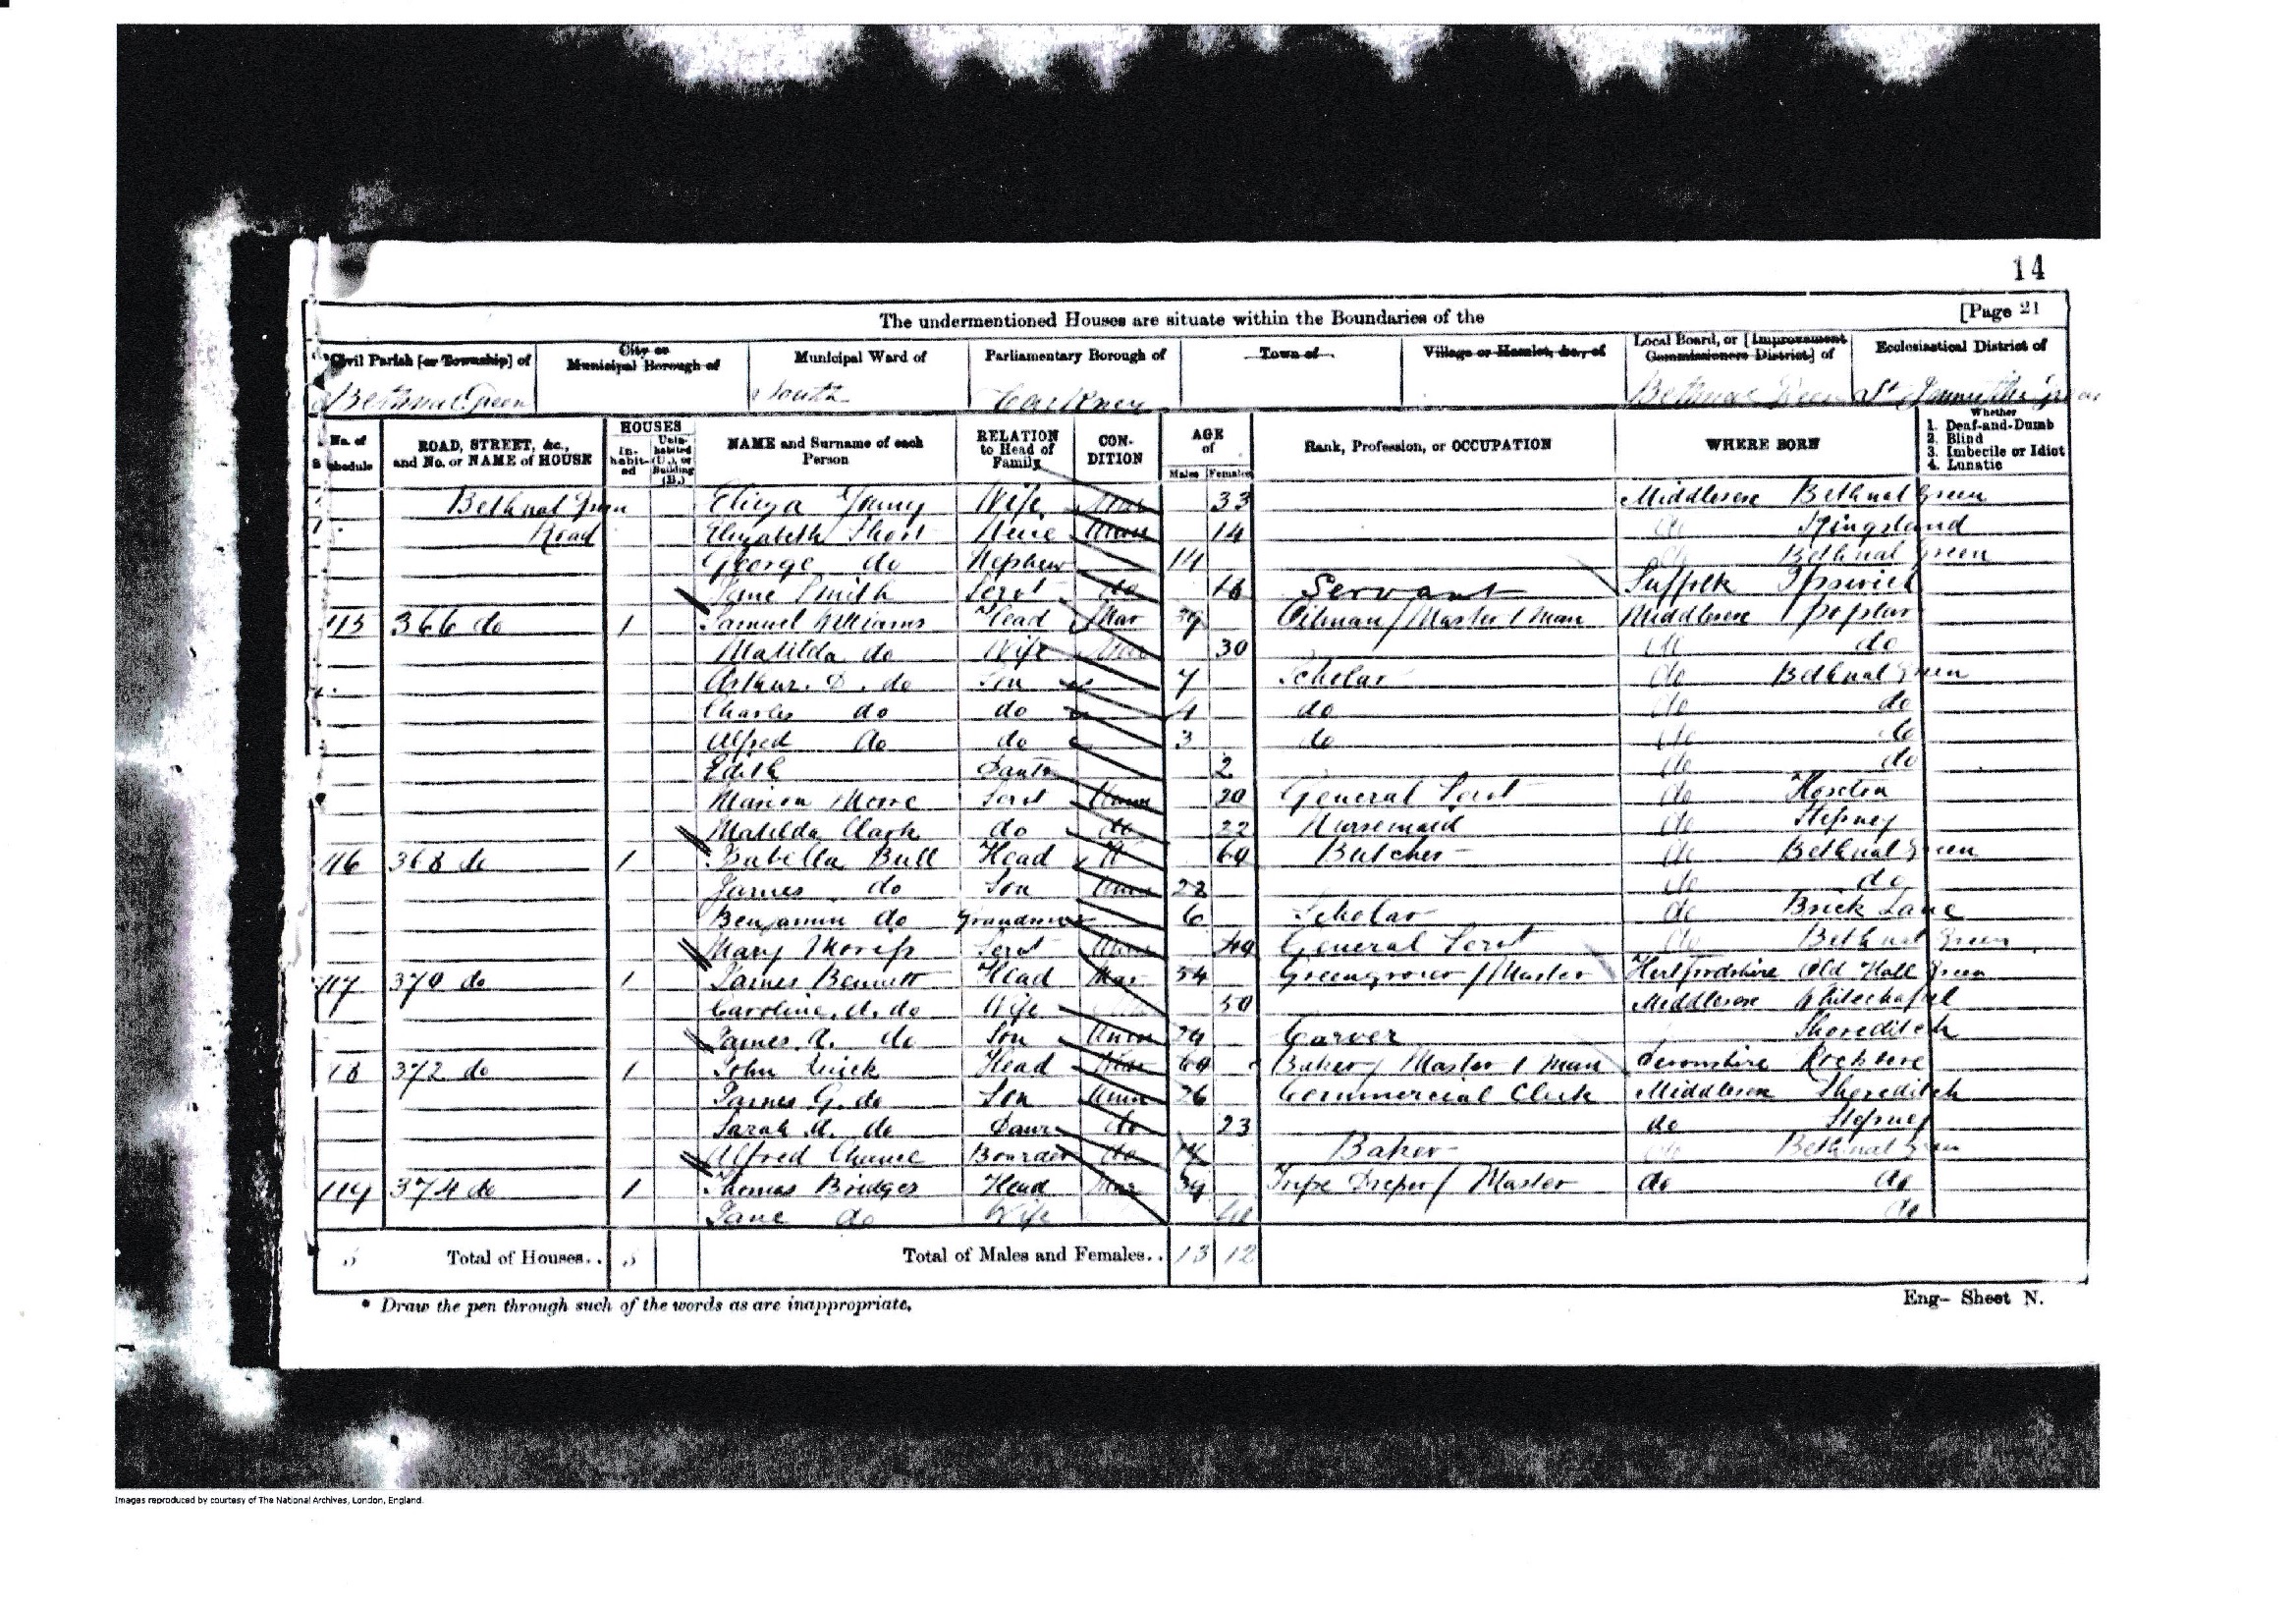 14
[Page 21
The undermentioned Houses are situate within the Boundaries of the
Civil Parish [or Township] of City or Municipal Borough of Municipal Ward of Parliamentary Borough of Town of Village or Hamlet, &c., of Local Board, or [Improvement Commissioners District] of Ecclesiastical District of
Bethnal Green South Hackney Bethnal Green St James the Great
No. of Schedule ROAD, STREET, &c., and No. or NAME of HOUSE HOUSES Inhabited Uninhabited (U.), or Building (B.) NAME and Surname of each Person RELATION to Head of Family CONDITION AGE of Males Females Rank, Profession, or OCCUPATION WHERE BORN Whether 1. Deaf-and-Dumb 2. Blind 3. Imbecile or Idiot 4. Lunatic
Bethnal Green Eliza Young Wife Mar 33 Middlesex Bethnal Green
Road Elizabeth Short Niece Unm 14 do Kingsland
George do Nephew 14 do Bethnal Green
Jane Smith Servt do 18 Servant Suffolk Ipswich
115 366 do 1 Samuel Williams Head Mar 39 Oilman / Master 1 man Middlesex Poplar
Matilda do Wife Mar 30 do do
Arthur. D. do Son 7 Scholar do Bethnal Green
Charles do do 4 do do do
Alfred do do 3 do do do
Edith Daur 2 do do
Marion Servt Unm 20 General Servt do Hoxton
Matilda Clark do do 22 Nursemaid do Stepney
116 368 do 1 Isabella Bull Head W 60 Butcher do Bethnal Green
James do Son Unm 22 do do
Benjamin do Grandson 6 Scholar do Brick Lane
Mary Servt Unm 40 General Servt do Bethnal Green
117 370 do 1 James Bennett Head Mar 54 Greengrocer / Master Hertfordshire Old Hall Green
Caroline. A. do Wife 50 Middlesex Whitechapel
James A. do Son Unm 24 Carver Shoreditch
118 372 do 1 John Head 60 Baker / Master 1 man Devonshire Rockbere
James G. do Son Unm 26 Commercial Clerk Middlesex Shoreditch
Sarah A. do Daur do 23 do Stepney
Alfred Boarder do Baker do Bethnal Green
119 374 do 1 Thomas Bridges Head Mar 39 Tripe / Master do do
Jane do Wife do
5 Total of Houses.. 5 Total of Males and Females.. 13 12
* Draw the pen through such of the words as are inappropriate.
Eng- Sheet N.
Images reproduced by courtesy of The National Archives, London, England.